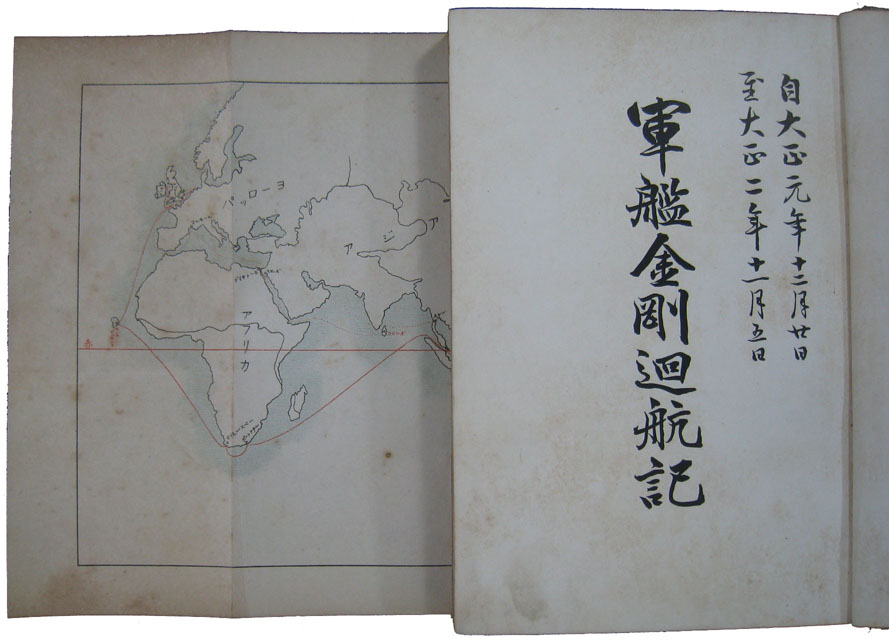 自大正元年十二月廿日
至大正二年十一月五日
軍艦金剛迴航記
ヨーロッパ
アジア
アフリカ
赤